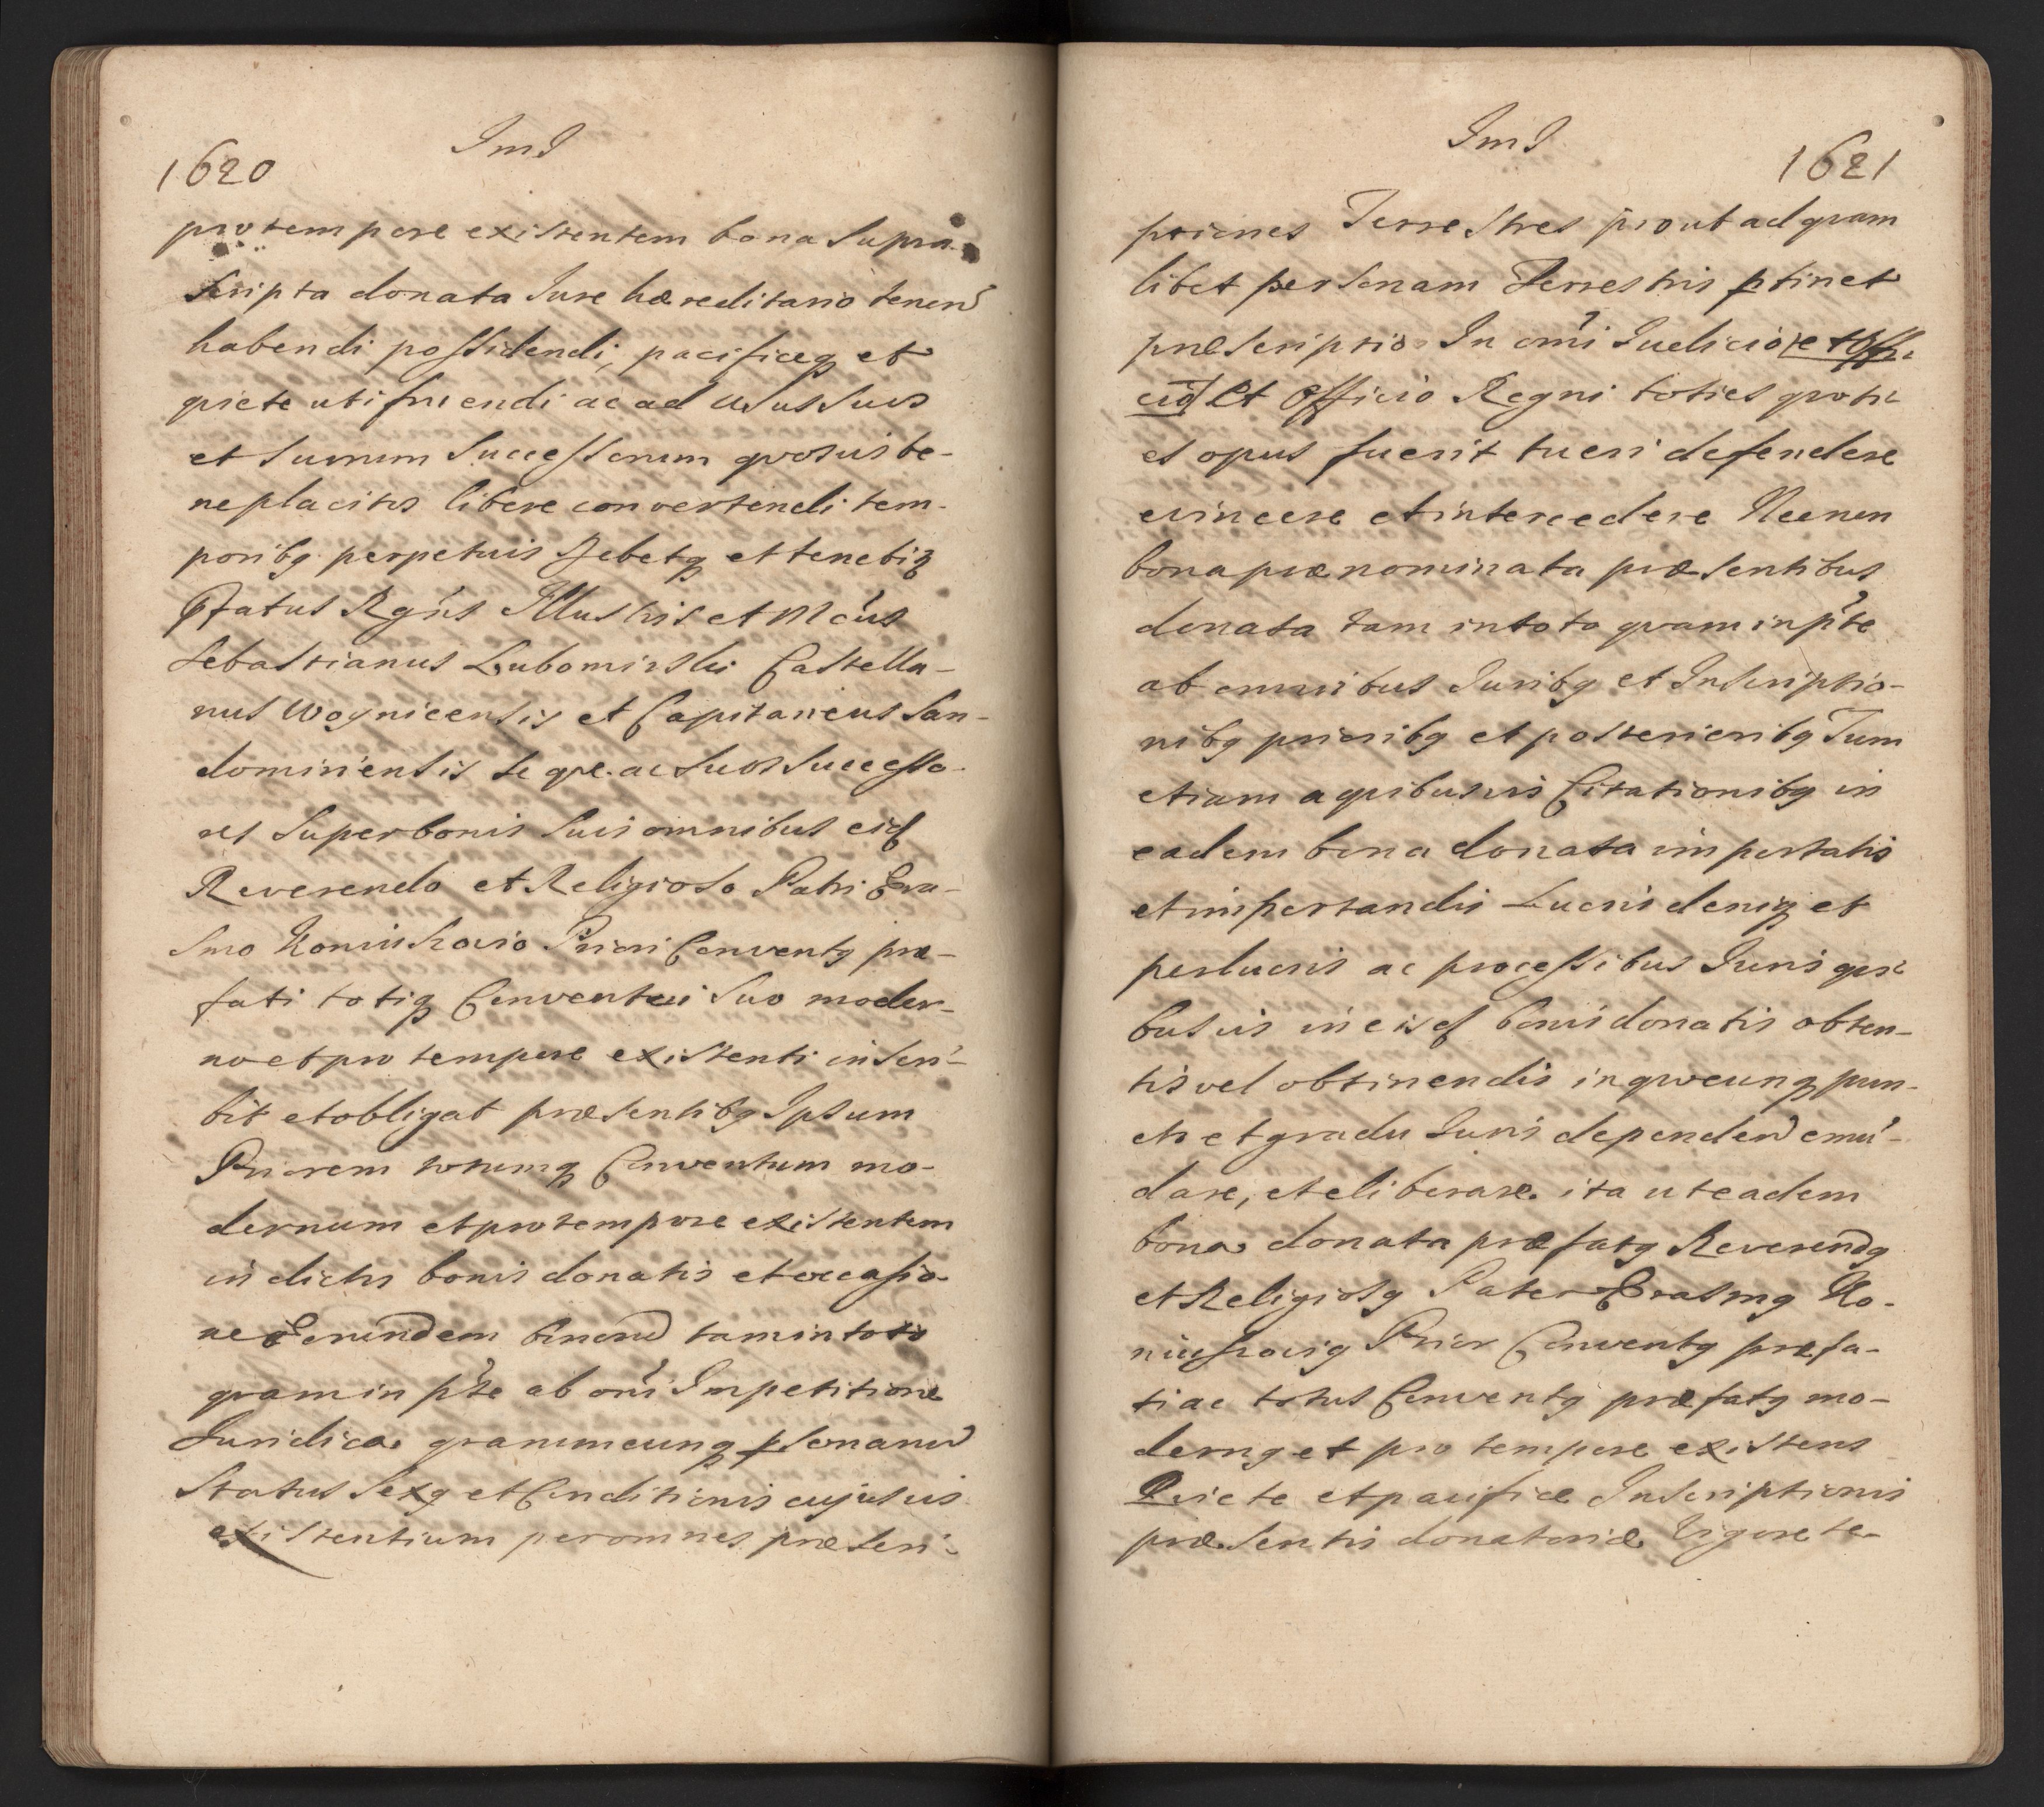 1620
ImJ
pro tempore existentem bona supra
scripta donata Jure hæreditario tenend
habendi possidendi, pacificeq et
qviete utifruendi ac ad usus suos
et suorum Successorum qvosvis be-
neplacitos libere convertendi tem-
poribq perpetuis Debetq et tenebit
Pfatus Rgñs Illustris et Mcus
Sebastianus Lubomirski Castella-
nus Woynicensis et Capitaneus San-
domiriensis se qve ac suos Successo-
res super bonis suis omnibus eid
Reverendo et Religioso Patri Era-
smo Koniuskovio Priori Conventq præ-
fati totiq Conventui suo moder-
no et pro tempore existenti inscri-
bit et obligat præsentibq Ipsum
Priorem totumq Conventum mo-
dernum et pro tempore existentem
in dictis bonis donatis et occasio-
ne Eorundem bonord tam in toto
qvam in pte ab oñi Impetitione
Juridica qvarumcunq psonarud
Status Sexq et Conditionis cujusvis
existentium per omnes præscri-
ImJ
1621
ptiones Terrestres prout ad qvam
libet personam Terrestris ptinet
præscriptio In omi Judicio et Offi-
cio et Officio Regni toties qvoti-
es opus fuerit tueri defendere
evincere et intercedere Necnon
bona prænominata præsentibus
donata tam in toto qvam in pte
ab omnibus Juribq et Inscriptio-
nibq prioribq et posterioribq Tum
etiam a qvibusvis Citationibq in
eadem bona donata importatis
et importandis Lucris deniq et
perlucris ac processibus Juris qvi-
busvis in eisd bonis donatis obten-
tis vel obtinendis in qvocunq pun-
cto et gradu Juris dependen emun-
dare, et eliberare ita ut eadem
bona donata præfatq Reverendq
et Religiosq Pater Erasmq Ko-
niuskoviq Prior Conventq præfa-
ti ac totus Conventq præfatq mo-
dernq et pro tempore existens
Qviete et pacifice Inscriptionis
præsentis donatoriæ Vigore te-